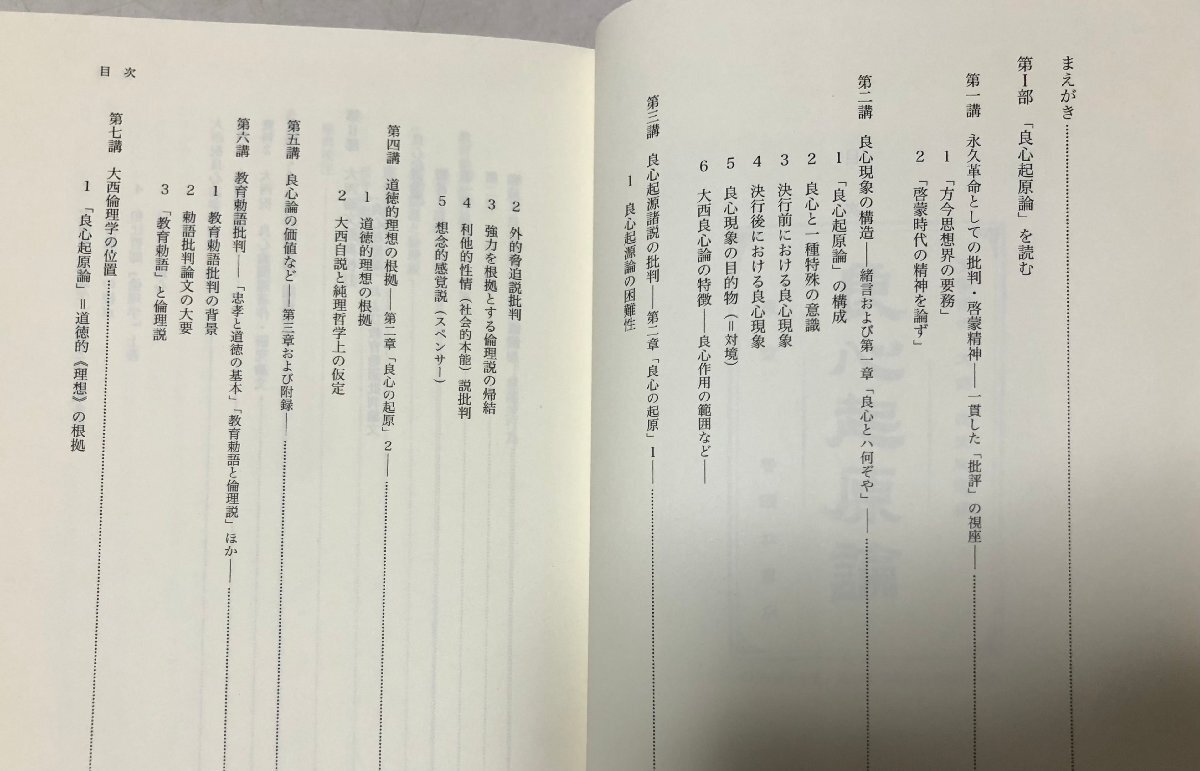 まえがき
第Ⅰ部 「良心起原論」を読む
第一講 永久革命としての批判・啓蒙精神――一貫した「批評」の視座――
1 「方今思想界の要務」
2 「啓蒙時代の精神を論ず」
第二講 良心現象の構造――緒言および第一章「良心とハ何ぞや」――
1 「良心起原論」の構成
2 良心と一種特殊の意識
3 決行前における良心現象
4 決行後における良心現象
5 良心現象の目的物（＝対境）
6 大西良心論の特徴――良心作用の範囲など――
第三講 良心起源諸説の批判――第二章「良心の起原」1――
1 良心起源論の困難性
目次
2 外的脅迫説批判
3 強力を根拠とする倫理説の帰結
4 利他的性情（社会的本能）説批判
5 想念的感覚説（スペンサー）
第四講 道徳的理想の根拠――第二章「良心の起原」2――
1 道徳的理想の根拠
2 大西自説と純理哲学上の仮定
第五講 良心論の価値など――第三章および附録――
第六講 教育勅語批判――「忠孝と道徳の基本」「教育勅語と倫理説」ほか――
1 教育勅語批判の背景
2 勅語批判論文の大要
3 「教育勅語」と倫理説
第七講 大西倫理学の位置
1 「良心起原論」＝道徳的《理想》の根拠